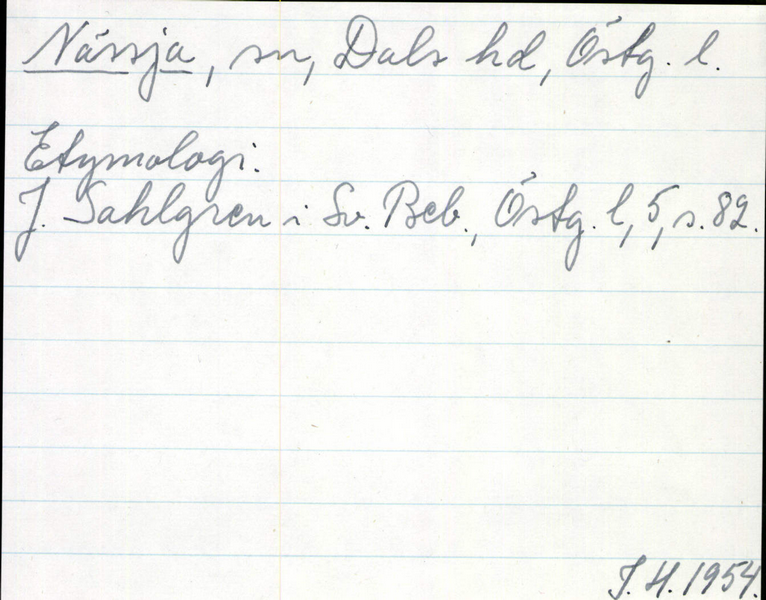 Nässja, sn, Dals hd, Östg. l.
Etymologi.
J. Sahlgren i Sv. Beb., Östg. l, 5, s. 82.
J. H. 1954.